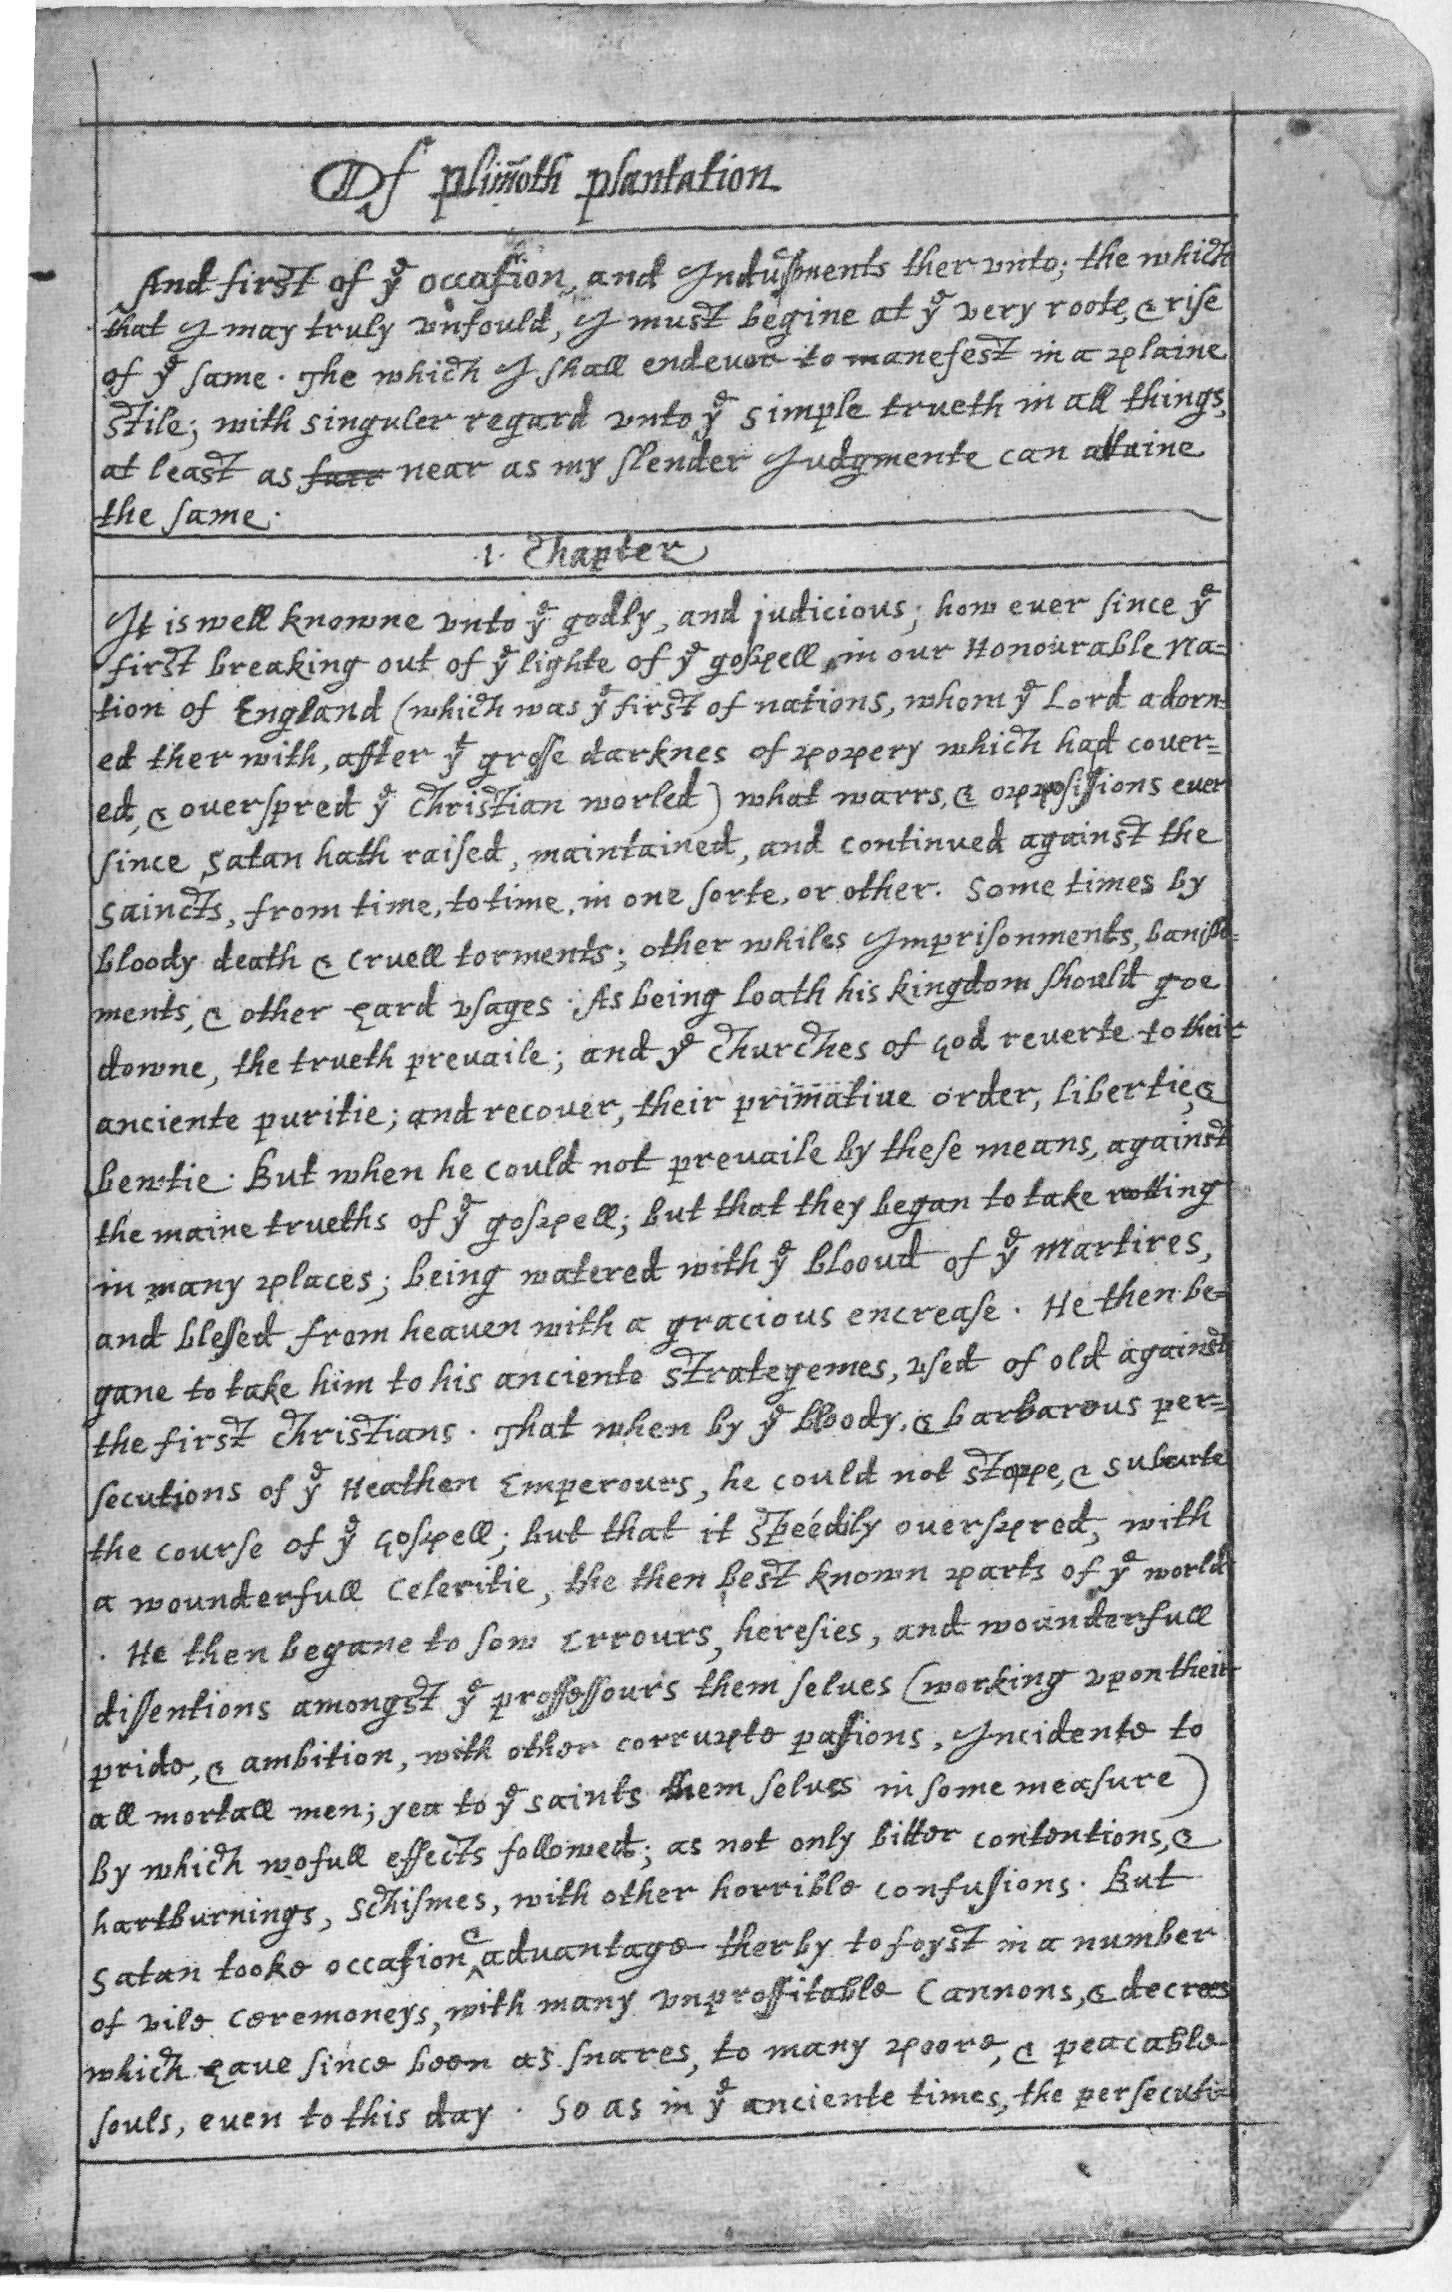 Of plim̃oth plantation
And first of yᵉ occasion, and Indusments ther vnto; the which
that I may truly vnfould, I must begine at yᵉ very roote, & rise
of yᵉ same. The which I shall endevor to manefest in a plaine
stile; with singuler regard vnto yᵉ simple trueth in all things,
at least as farr near as my slender Judgmente can attaine
the same.
1. Chapter
It is well knowne vnto yᵉ godly, and judicious; how ever since yᵉ
first breaking out of yᵉ lighte of yᵉ gospell, in our Honourable Na=
tion of England (which was yᵉ first of nations, whom yᵉ Lord adorn=
ed ther with, affter yᵗ grosse darknes of popery which had cover=
ed, & overspred yᵉ christian worled) what warrs, & oppossissions ever
since satan hath raised, maintained, and continued against the
saincts, from time, to time, in one sorte, or other. Some times by
bloody death & cruell torments; other whiles Imprisonments, banish=
ments, & other hard vsages. As being loath his kingdom should goe
downe, the trueth prevaile; and yᵉ churches of god reverte to their
anciente puritie; and recover, their primative order, libertie, &
bewtie. But when he could not prevaile by these means, against
the maine trueths of yᵉ gospell; but that they began to take rotting
in many places; being watered with yᵉ bloud of yᵉ martires,
and blessed from heaven with a gracious encrease. He then be=
gane to take him to his anciente strategemes, vsed of old against
the first christians. That when by yᵉ bloody, & barbarous per=
secutions of yᵉ Heathen Emperours, he could not stoppe, & subuerte
the course of yᵉ gospell; but that it speedily overspred, with
a wounderfull celeritie, the then best known parts of yᵉ world
. He then begane to sow errours, heresies, and wounderfull
dissentions amongst yᵉ proffessours them selues (working vpon their
pride, & ambition, with other corrupte passions, Incidente to
all mortall men; yea to yᵉ saints them selues in some measure)
by which wofull effects followed; as not only bitter contentions, &
hartburnings, schismes, with other horrible confusions. But
satan tooke occasion & advantage therby to foyst in a number
of vile ceremoneys, with many vnproffitable cannons, & decrees
which have since been as snares, to many poore, & peacable
souls, even to this day. So as in yᵉ anciente times, the persecuti=